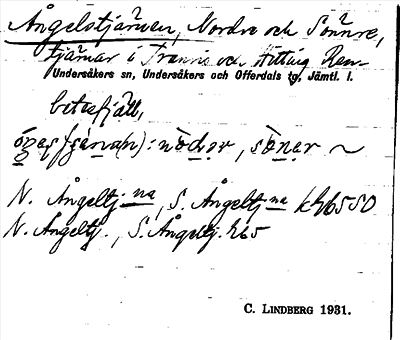 Ångelstjärnen, Nordre och Sönnre,
tjärnar i Tranris och Anttzig Ren-
Undersåkers sn, Undersåkers och Offerdals tg, Jämtl. l.
betesfjäll,
: nòdər, sönər ~
N. Ångeltj:na, S. Ångeltj:na kh6550
N. Ångeltj., S. Ångeltj. h65
C. LINDBERG 1931.